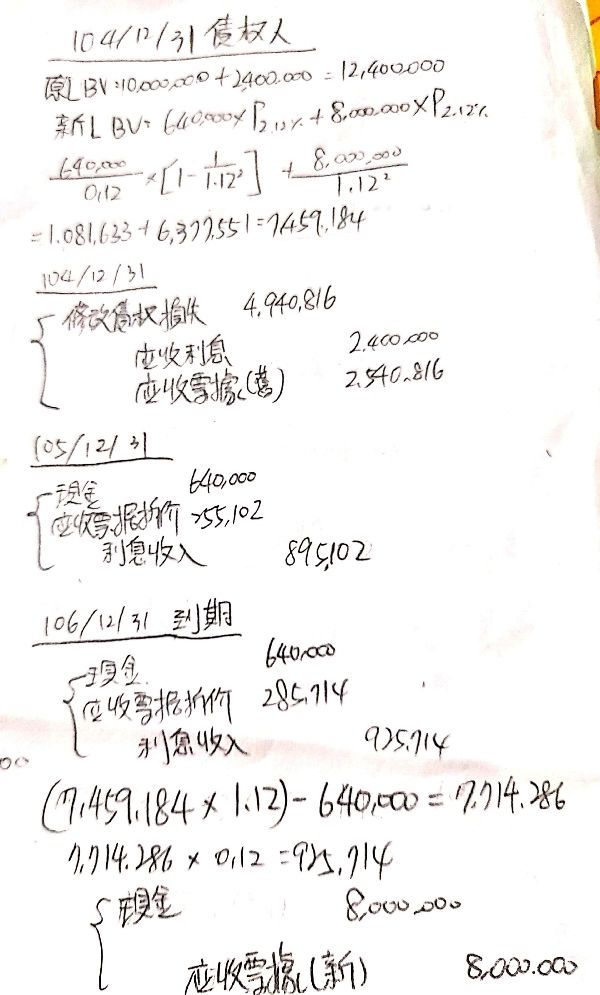 104/12/31 債权人
原L BV:10,000,000+2,400.000=12,400,000
新L BV: 640,000×P2,12%+8,000,000×P2.12%
640,000/0,12×[1-1/1.12²]+8,000,000/1.12²
=1.081,633+6,377,551=7,459,184
104/12/31
修改債权損失 4,940,816
应收利息 2,400,000
应收票據(舊) 2,540,816
105/12/31
現金 640,000
应收票据折价 255,102
利息收入 895,102
106/12/31 到期
現金 640,000
应收票据折价 285,714
利息收入 925,714
00
(7,459,184×1.12)-640,000=7,714.286
7,714.286×0,12=925,714
現金 8,000,000
应收票據(新) 8,000.000